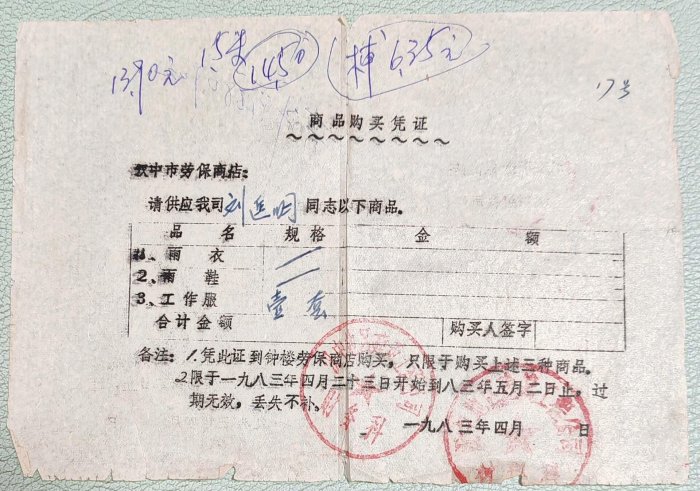 15类 14.5分 补6.35元
13.90元
17号
商品购买凭证
汉中市劳保商店：
请供应我司刘 明同志以下商品。
品 名 规格 金 额
1、雨 衣
2、雨 鞋
3、工作服 壹套
合计金额 购买人签字
备注：1.凭此证到钟楼劳保商店购买，只限于购买上述三种商品。
2.限于一九八三年四月二十三日开始到八三年五月二日止，过
期无效，丢失不补。
一九八三年四月 日